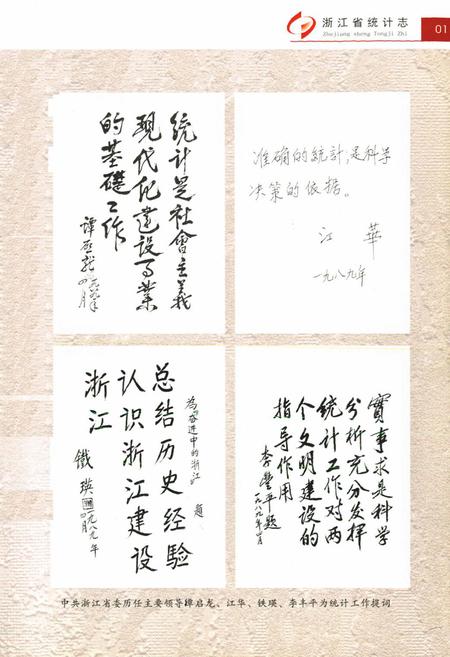 浙江省统计志
Zhejiang sheng Tongji Zhi
01
统计是社會主義
现代化建设事業
的基礎工作
谭启龙 一九八九年
四月
准确的統計,是科学
决策的依据。
江 華
一九八九年
为"奋进中的浙江"
题
总结历史经验
认识浙江建设
浙江
鐵瑛 一九八九年
四月
實事求是科学
分析充分发挥
统计工作对两
个文明建设的
指导作用
李豐平题
一九八九年
中共浙江省委历任主要领导谭启龙、江华、铁瑛、李丰平为统计工作提词